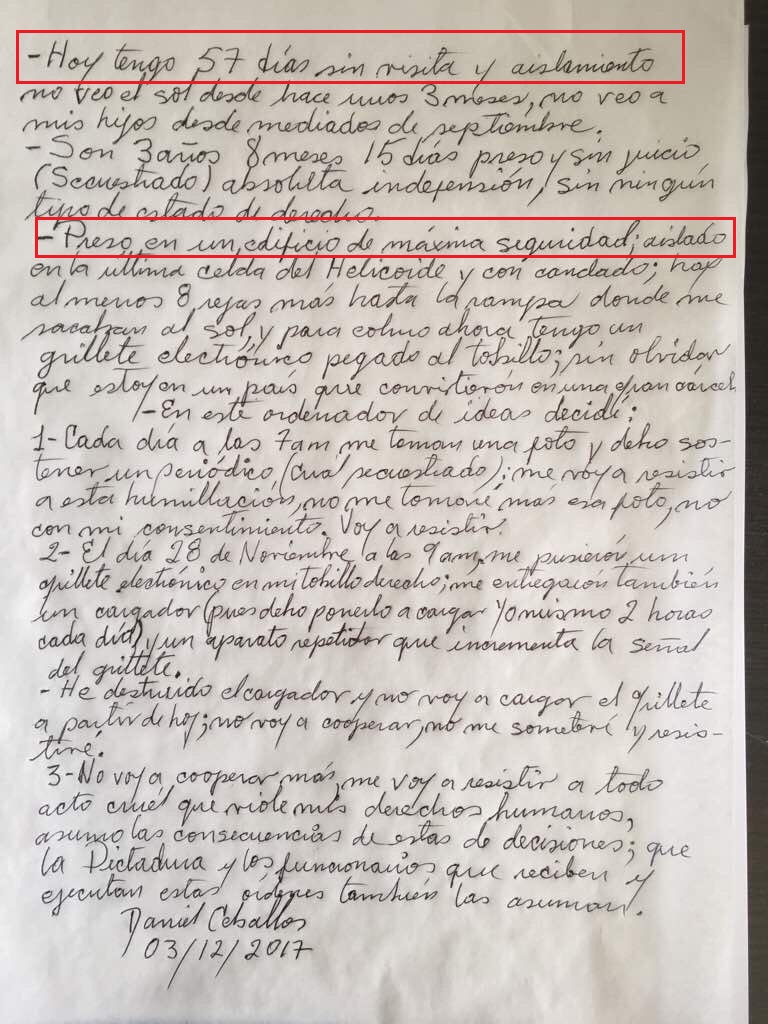 - Hoy tengo 57 días sin visita y aislamiento
no veo el sol desde hace unos 3 meses, no veo a
mis hijos desde mediados de septiembre.
- Son 3 años 8 meses 15 días preso y sin juicio
(Secuestrado) absoluta indefensión, sin ningún
tipo de estado de derecho.
- Preso en un edificio de máxima seguridad; aislado
en la última celda del Helicoide y con candado; hay
al menos 8 rejas más hasta la rampa donde me
sacaban al sol, y para colmo ahora tengo un
grillete electrónico pegado al tobillo; sin olvidar
que estoy en un país que convirtieron en una gran cárcel
- En este ordenador de ideas decidí:
1- Cada día a las 7am me toman una foto y debo sos-
tener un periódico (cual secuestrado); me voy a resistir
a esta humillación, no me tomaré más esa foto, no
con mi consentimiento. Voy a resistir.
2- El día 28 de Noviembre a las 9am, me pusieron un
grillete electrónico en mi tobillo derecho; me entregaron también
un cargador (pues debo ponerlo a cargar yo mismo 2 horas
cada día) y un aparato repetidor que incrementa la señal
del grillete.
- He destruido el cargador y no voy a cargar el grillete
a partir de hoy; no voy a cooperar, no me someteré y resis-
tiré.
3- No voy a cooperar más, me voy a resistir a todo
acto cruel que viole mis derechos humanos,
asumo las consecuencias de estas de decisiones; que
la Dictadura y los funcionarios que reciben y
ejecutan estas órdenes también las asuman.
Daniel Ceballos
03/12/2017